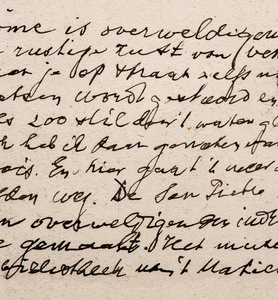 ome is overweldigen
rustige rust van (ver
je op straat zelfs n
wordt gestoord e
es 200 stil dat 't water
k heb ik dan genoten van
ois. En hier gaat 't weer
den weg. De San Pietro
n overweldigenden indr
e gemaakt. Het mus
bibliotheek van 't Vatica